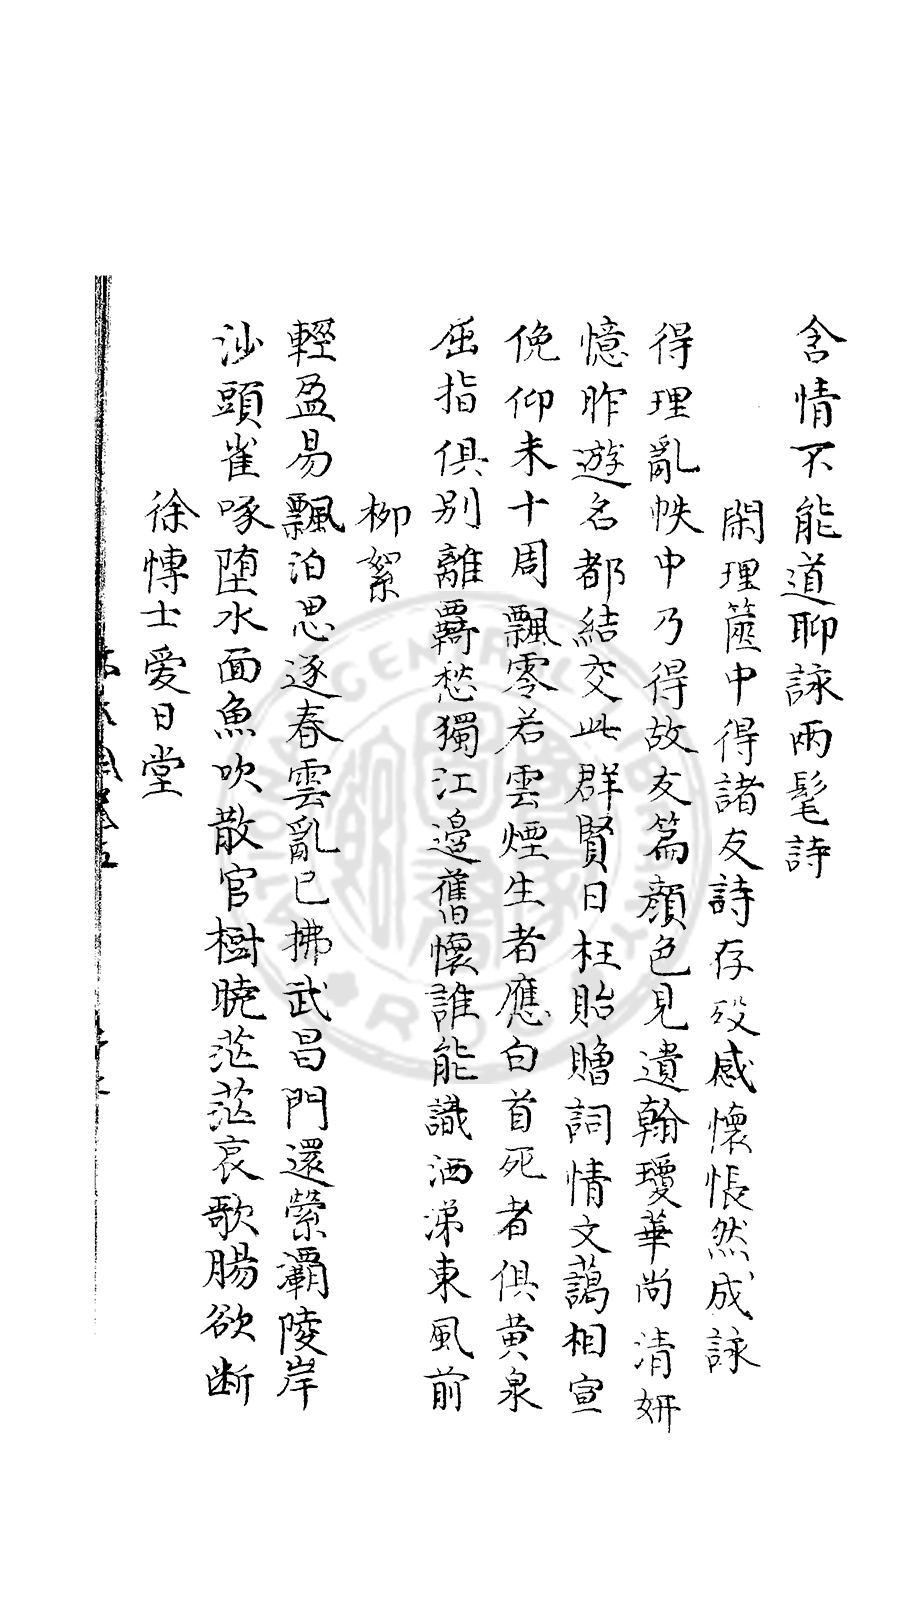 含情不能道聊詠兩髦詩
閑理篋中得諸友詩存歿感懷悵然成詠
得理亂帙中乃得故友篇顔色見遺翰瓊華尚清妍
憶昨遊名都結交此群賢日枉貽贈詞情文藹相宣
俛仰未十周飄零若雲煙生者應白首死者俱黄泉
屈指俱别離羇愁獨江邊舊懷誰能識洒涕東風前
柳絮
輕盈易飄泊思逐春雲亂已拂武昌門還縈灞陵岸
沙頭雀啄堕水面魚吹散官樹曉茫茫哀歌腸欲断
徐愽士爱日堂
NATIONAL CENTRAL LIBRARY
R.O.C.